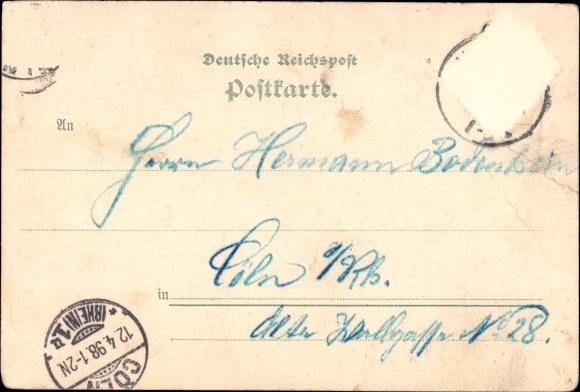 Deutsche Reichspost
Postkarte.
An
Herrn Hermann Bodenheim
Cöln a/Rh.
in
Alte Wallgasse No 28.
CÖLN (RHEIN) 1
12.4.98.1-2N